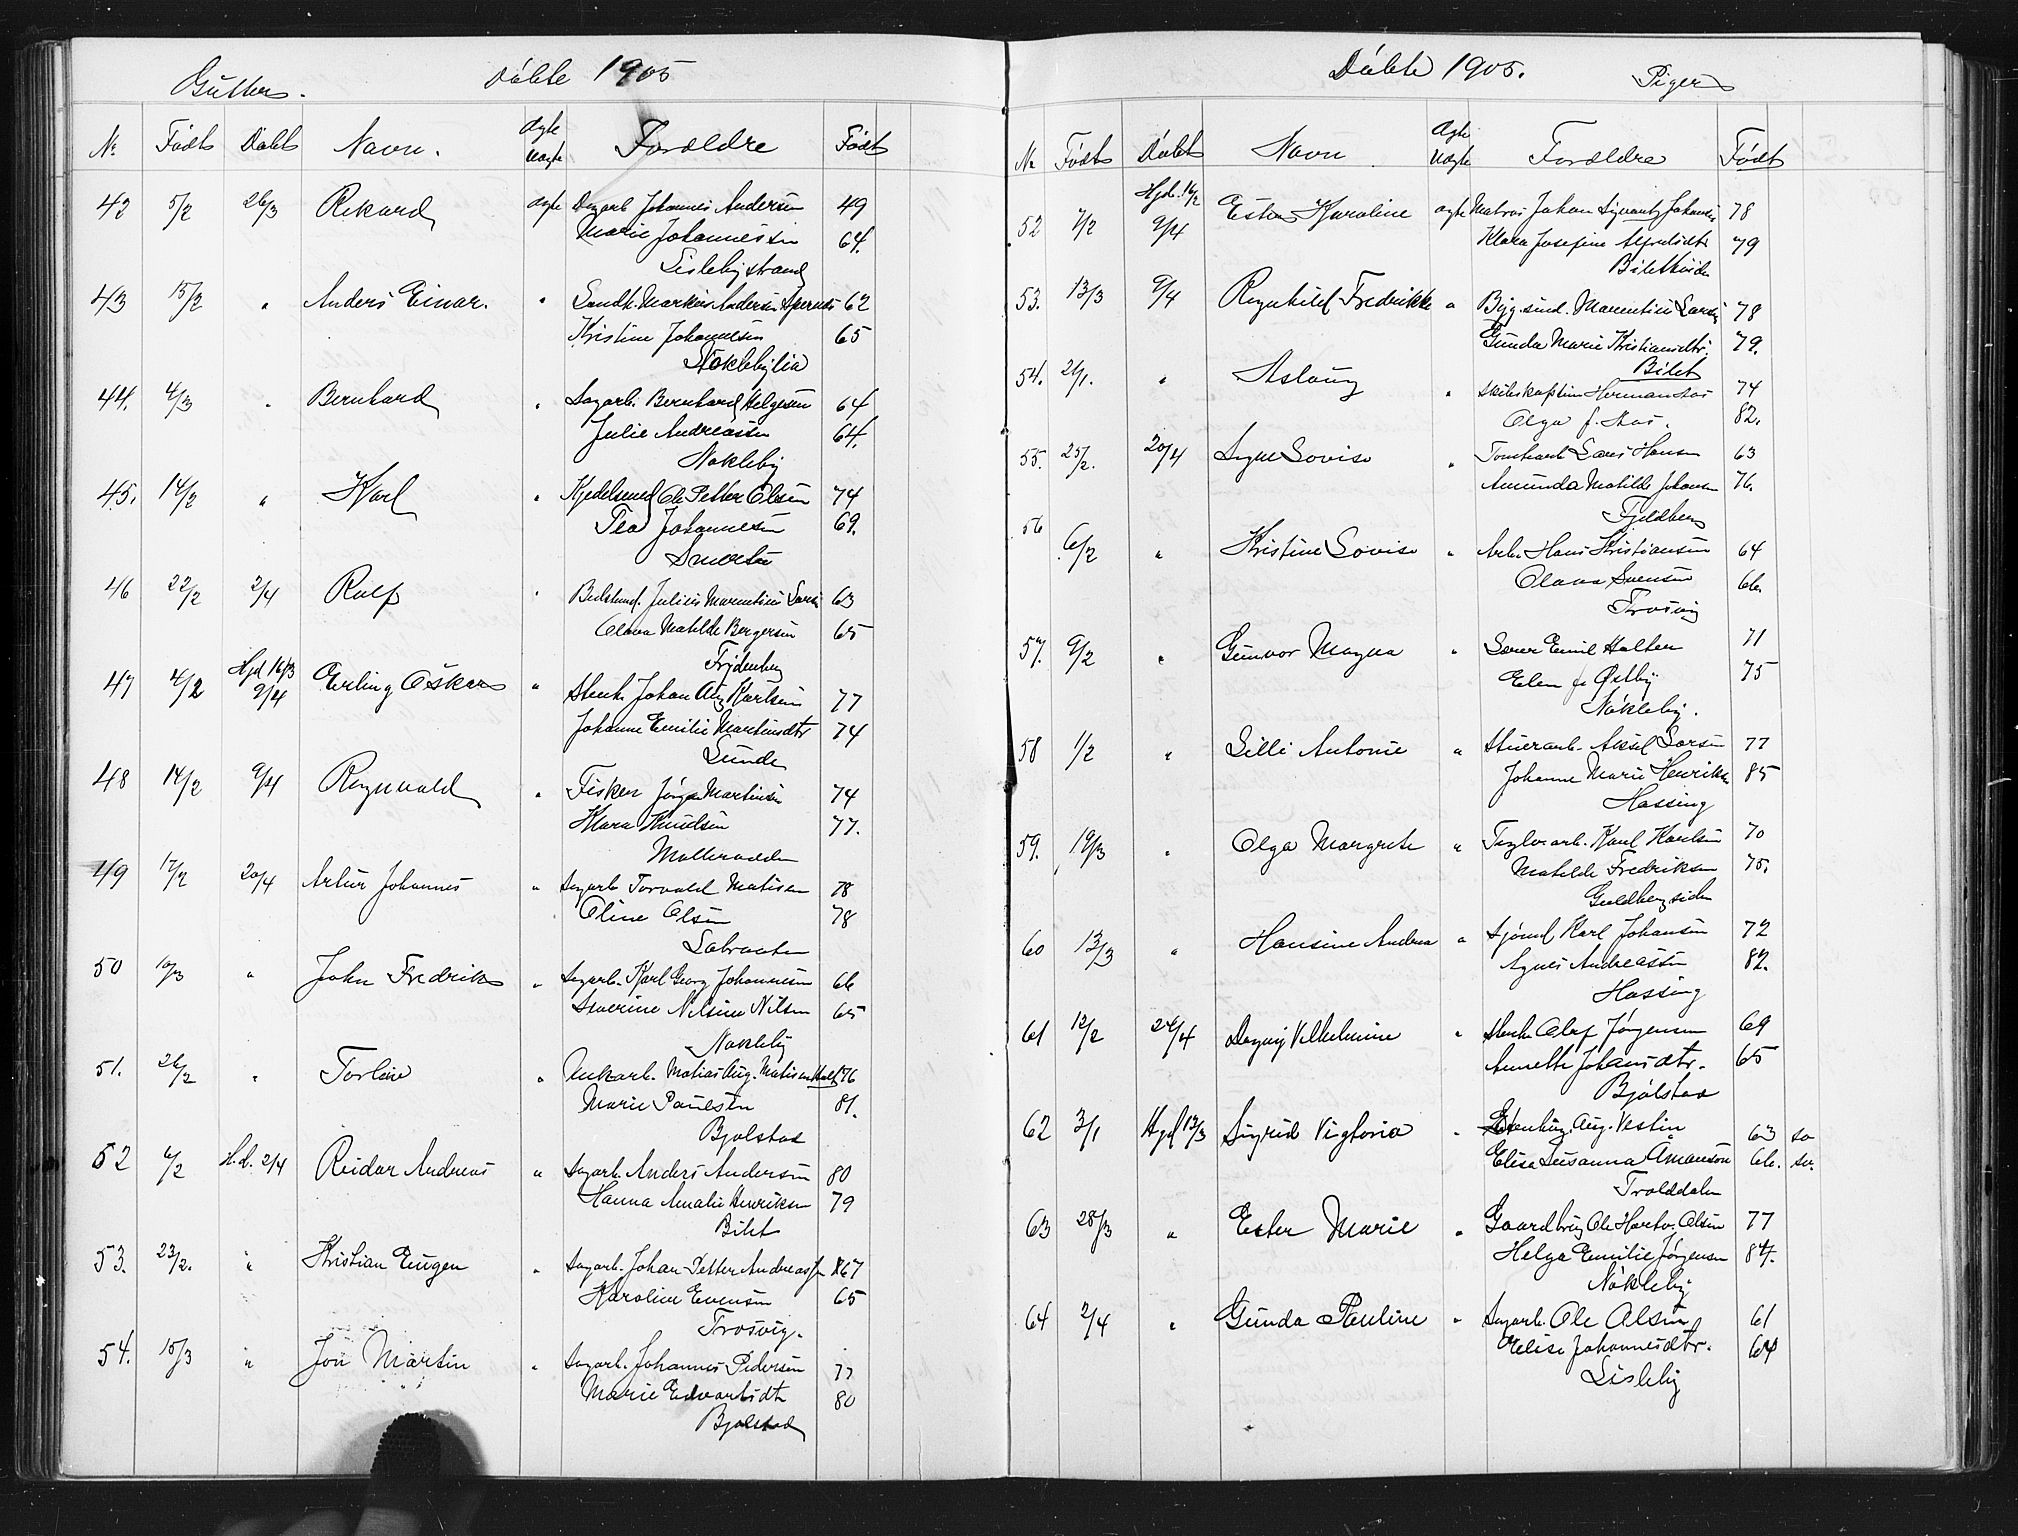 Gutter. Døbte 1905
No Født Døbt Navn. Ægte Uægte Forældre Født
42 5/2 26/3 Rikard ægte Dagarb. Johannes Andersen 49
Marie Johannessen 64.
Lislebystrand
43 15/2 " Anders Einar. " Landh. Markus Andersen 62
Kristine Johannesen 65
Nøklebylia
44. 4/3 " Bernhard " Dagarb. Bernhard Helgesen 64
Julie Andreassen 64.
Nøkleby
45. 14/2 " Karl " Kjedelsmed Ole Petter Olsen 74
Tea Johannesen 69.
46 22/2 2/4 Rolf " Julius Marentius Larsen 63
Olava Matilde Bergersen 65
Frydenberg
47 4/2 Hjd 16/3 9/4 Erling Oskar " Stenh. Johan Aug Karlsen 77
Johanne Emilie Martinsdtr 74
Lunde
48 14/2 9/4 Ragnvald " Fisker Jørgen Martinsen 74
Klara Knudsen 77.
49 17/2 20/4 Artur Johannes " Dagarb Torvald Matisen 78
Oline Olsen 78
Labraaten
50 10/3 " John Fredrik " Dagarb. Karl Georg Johannesen 66
Severine Nilsine Nilsen 65
Nøkleby
51. 26/2 " Torleiv " Matias Aug. Matisen 76
Marie Paulsen 81.
Bjølstad
52 6/2 H.d. 2/4 Reidar Andreas " Dagarb. Anders Andersen 80
Hanna Amalie Henriksen 79
Bilet
53. 23/2. " Kristian Eugen " Dagarb. Johan Petter Andreassen 67
Karoline Evensen 65
Trosvig.
54. 15/3 " Jon Martin " Dagarb. Johannes Pedersen 77
Marie Edvartsdtr 80
Bjølstad
Døbte 1905. Piger
No Født Døbt Navn Ægte Uægte Forældre Født
52 7/2 Hjd. 16/2 9/4 Ester Karoline ægte Matros Johan Sigvart Johanes 78
Klara Josefine Alfredsdtr 79
53. 13/3 9/4 Ragnhild Fredrikke " Marentius Larsen 78
Gunda Marie Kristiansdtr. 79.
Bilet
54. 21/1. " Aslaug " Skibskaptein Herman Aas 74
Olga f. Aas. 82.
55. 25/2. 20/4 Signe Lovise " Tomtearb Lars Hansen 63
Amunda Matilde Johansen 76.
Fjeldberg
56 6/2 " Kristine Lovise " Arb. Hans Kristiansen 64
Olava Svensen 66.
Trosvig
57. 9/2 " Gunvor Magna " Lærer Emil Holter 71
Elen f. Østby 75
Nøkleby.
58 1/2 " Lilli Antonie " Stuerarb. Aksel Larsen 77
Johanne Marie Henriksen 85
Hassing
59. 19/3 " Olga Margrete " Teglv.arb. Karl Karlsen 70
Matilde Fredriksen 75.
Guldbergsiden
60 13/3 " Hansine Andrea " Sjømd Karl Johansen 72
Agnes Andreassen 82.
Hassing
61 12/2 24/4 Dagny Vilhelmine " Stenh. Olaf Jørgensen 69
Annette Johansdtr. 65
Bjølstad
62 3/1 Hjd 13/3 Sigrid Vigtoria " Stenhug. Aug. Vestin 63 sv
Elisa Susanna Åmanson 66. sv.
Trolddalen
63 28/3 " Ester Marie " Gaardbrug Ole Hartv. Olsen 77
Helga Emilie Jørgensen 84.
Nøkleby
64 2/4 " Gunda Pauline " Dagarb. Ole Olsen 61
Elise Johannesdtr. 64
Lisleby